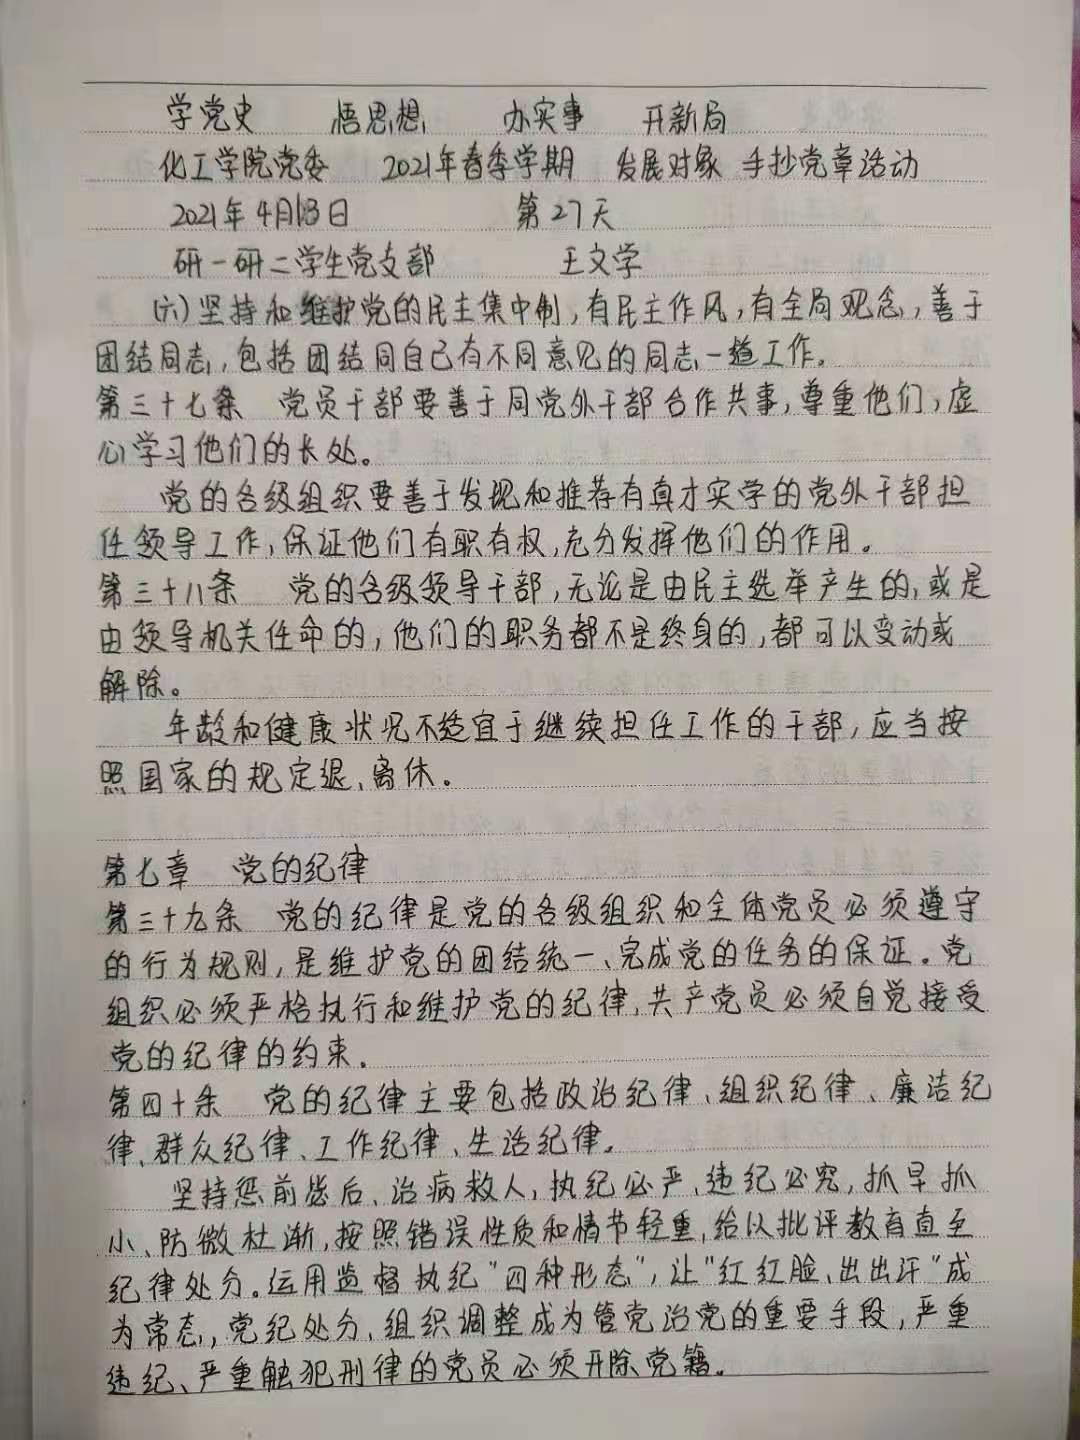 学党史 悟思想 办实事 开新局
化工学院党委 2021年春季学期 发展对象 手抄党章活动
2021年4月13日 第27天
研一研二学生党支部 王文学
(六)坚持和维护党的民主集中制,有民主作风,有全局观念,善于
团结同志,包括团结同自己有不同意见的同志一道工作。
第三十七条 党员干部要善于同党外干部合作共事,尊重他们,虚
心学习他们的长处。
党的各级组织要善于发现和推荐有真才实学的党外干部担
任领导工作,保证他们有职有权,充分发挥他们的作用。
第三十八条 党的各级领导干部,无论是由民主选举产生的,或是
由领导机关任命的,他们的职务都不是终身的,都可以变动或
解除。
年龄和健康状况不适宜于继续担任工作的干部,应当按
照国家的规定退、离休。
第七章 党的纪律
第三十九条 党的纪律是党的各级组织和全体党员必须遵守
的行为规则,是维护党的团结统一、完成党的任务的保证。党
组织必须严格执行和维护党的纪律,共产党员必须自觉接受
党的纪律的约束。
第四十条 党的纪律主要包括政治纪律、组织纪律、廉洁纪
律、群众纪律、工作纪律、生活纪律。
坚持惩前毖后、治病救人,执纪必严、违纪必究,抓早抓
小、防微杜渐,按照错误性质和情节轻重,给以批评教育直至
纪律处分。运用监督执纪"四种形态",让"红红脸、出出汗"成
为常态,党纪处分、组织调整成为管党治党的重要手段,严重
违纪、严重触犯刑律的党员必须开除党籍。